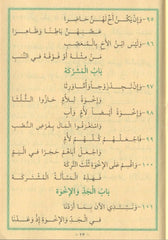 ٩٥- وَإِنْ يَكُنْ أَخٌ لَهُنَّ حَاضِرًا
عَصَبَهُنَّ بَاطِنًا وَظَاهِرَا
٩٦- وَلَيْسَ ابْنُ الْأَخِ بِالْمُعَصِّبِ
مَنْ مِثْلَهُ أَوْ فَوْقَهُ فِي النَّسَبِ
بَابُ الْمُشَرَّكَةِ
٩٧- وَإِنْ تَجِدْ زَوْجًا وَأُمًّا وَرِثَا
وَإِخْوَةً لِلْأُمِّ حَازُوا الثُّلُثَا
٩٨- وَإِخْوَةً أَيْضًا لِأُمٍّ وَأَبِ
وَاسْتَغْرَقُوا الْمَالَ بِفَرْضِ النُّصُبِ
٩٩- فَاجْعَلْهُمُ كُلَّهُمُ لِأُمِّ
وَاجْعَلْ أَبَاهُمْ حَجَرًا فِي الْيَمِّ
١٠٠- وَاقْسِمْ عَلَى الْإِخْوَةِ ثُلْثَ التَّرِكَهْ
فَهَذِهِ الْمَسْأَلَةُ الْمُشْتَرَكَهْ
بَابُ الْجَدِّ وَالْإِخْوَةِ
١٠١- وَنَبْتَدِي الْآنَ بِمَا أَرَدْنَا
فِي الْجَدِّ وَالْإِخْوَةِ إِذْ وَعَدْنَا